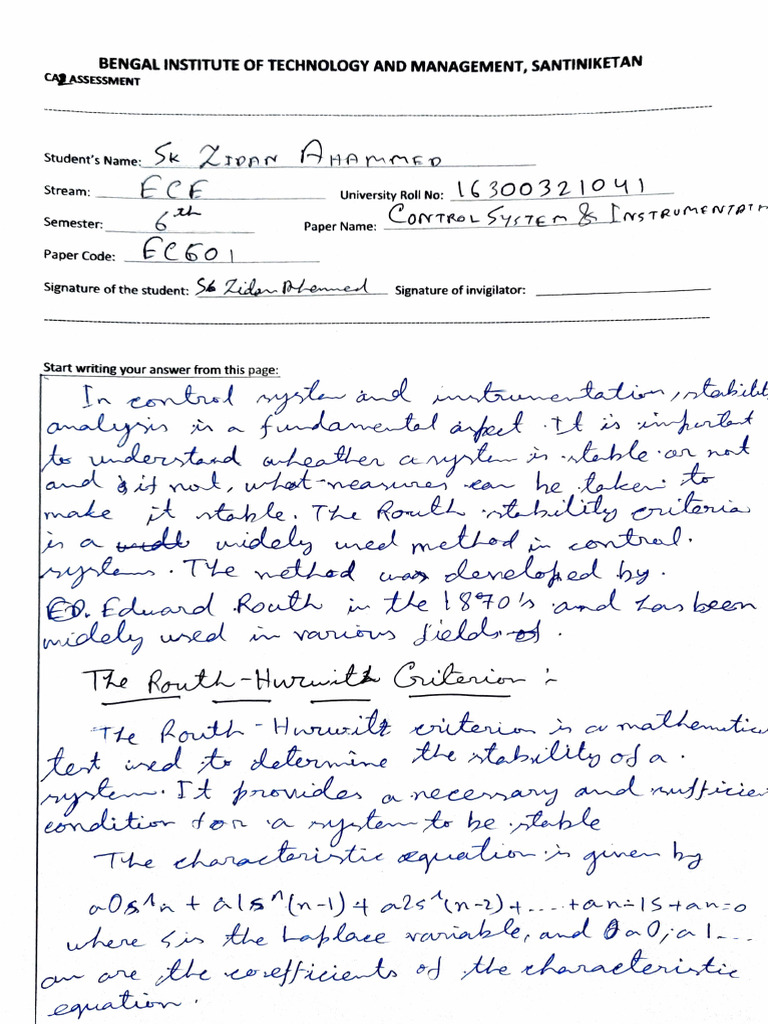 BENGAL INSTITUTE OF TECHNOLOGY AND MANAGEMENT, SANTINIKETAN
CA2 ASSESSMENT
Student's Name: SK ZIDAN AHAMMED
Stream: ECE University Roll No: 16300321041
Semester: 6th Paper Name: CONTROL SYSTEM & INSTRUMENTATIN
Paper Code: EC601
Signature of the student: Sk Zidan Ahammed Signature of invigilator:
Start writing your answer from this page:
In control system and instrumentation, stability
analysis is a fundamental aspect. It is important
to understand wheather a system is stable or not
and if not, what measures can be taken to
make it stable. The Routh stability criteria
is a widely used method in control.
systems. The method was developed by.
Edward Routh in the 1870's and has been
widely used in various fields.
The Routh-Hurwitz Criterion :-
The Routh-Hurwitz criterion is a mathematica
test used to determine the stability of a.
system. It provides a necessary and sufficien
condition for a system to be stable
The characteristic equation is given by
a0s^n + a1s^(n-1) + a2s^(n-2) + .... + an-1s + an=0
where s is the Laplace variable, and a0, a1...
an are the coefficients of the characteristic
equation.